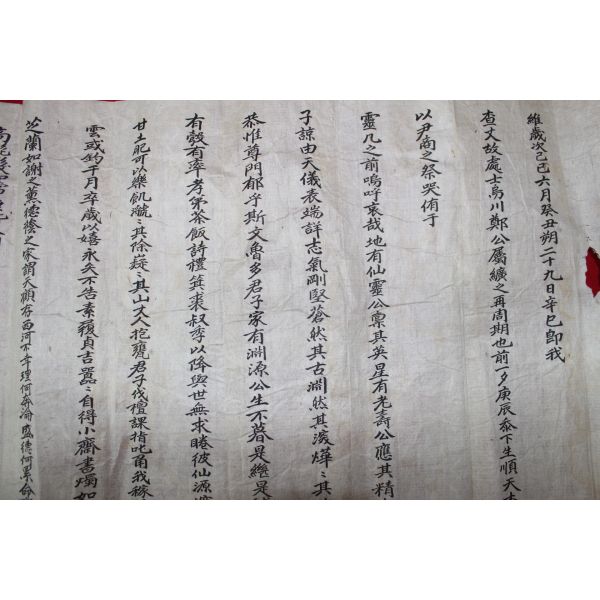 維歲次己巳六月癸丑朔二十九日辛巳卽我
查丈故處士烏川鄭公屬纊之再周期也前一夕庚辰忝下生順天
以尹商之祭哭侑于
靈几之前嗚呼哀哉地有仙靈公禀其英星有老壽公應其精
子諒由天儀表端詳志氣剛堅蒼然其古淵然其濙燁〻其
恭惟尊門郁乎斯文魯多君子家有淵源公生不暮是繼是
有榖有率孝弟茶飯詩禮箕裘叔季以降與世無求睠彼仙源
甘土肥可以樂飢巍〻其除嶷〻其山丈人抱甕君子伐檀課指叱甬我稼
雲或釣于月卒歲以嬉永矢不告素履貞吉囂〻自得小齋書燭如
芝蘭如謝之薰德蔭之家謂天顧存西河不幸理何舛渝盛德何累命